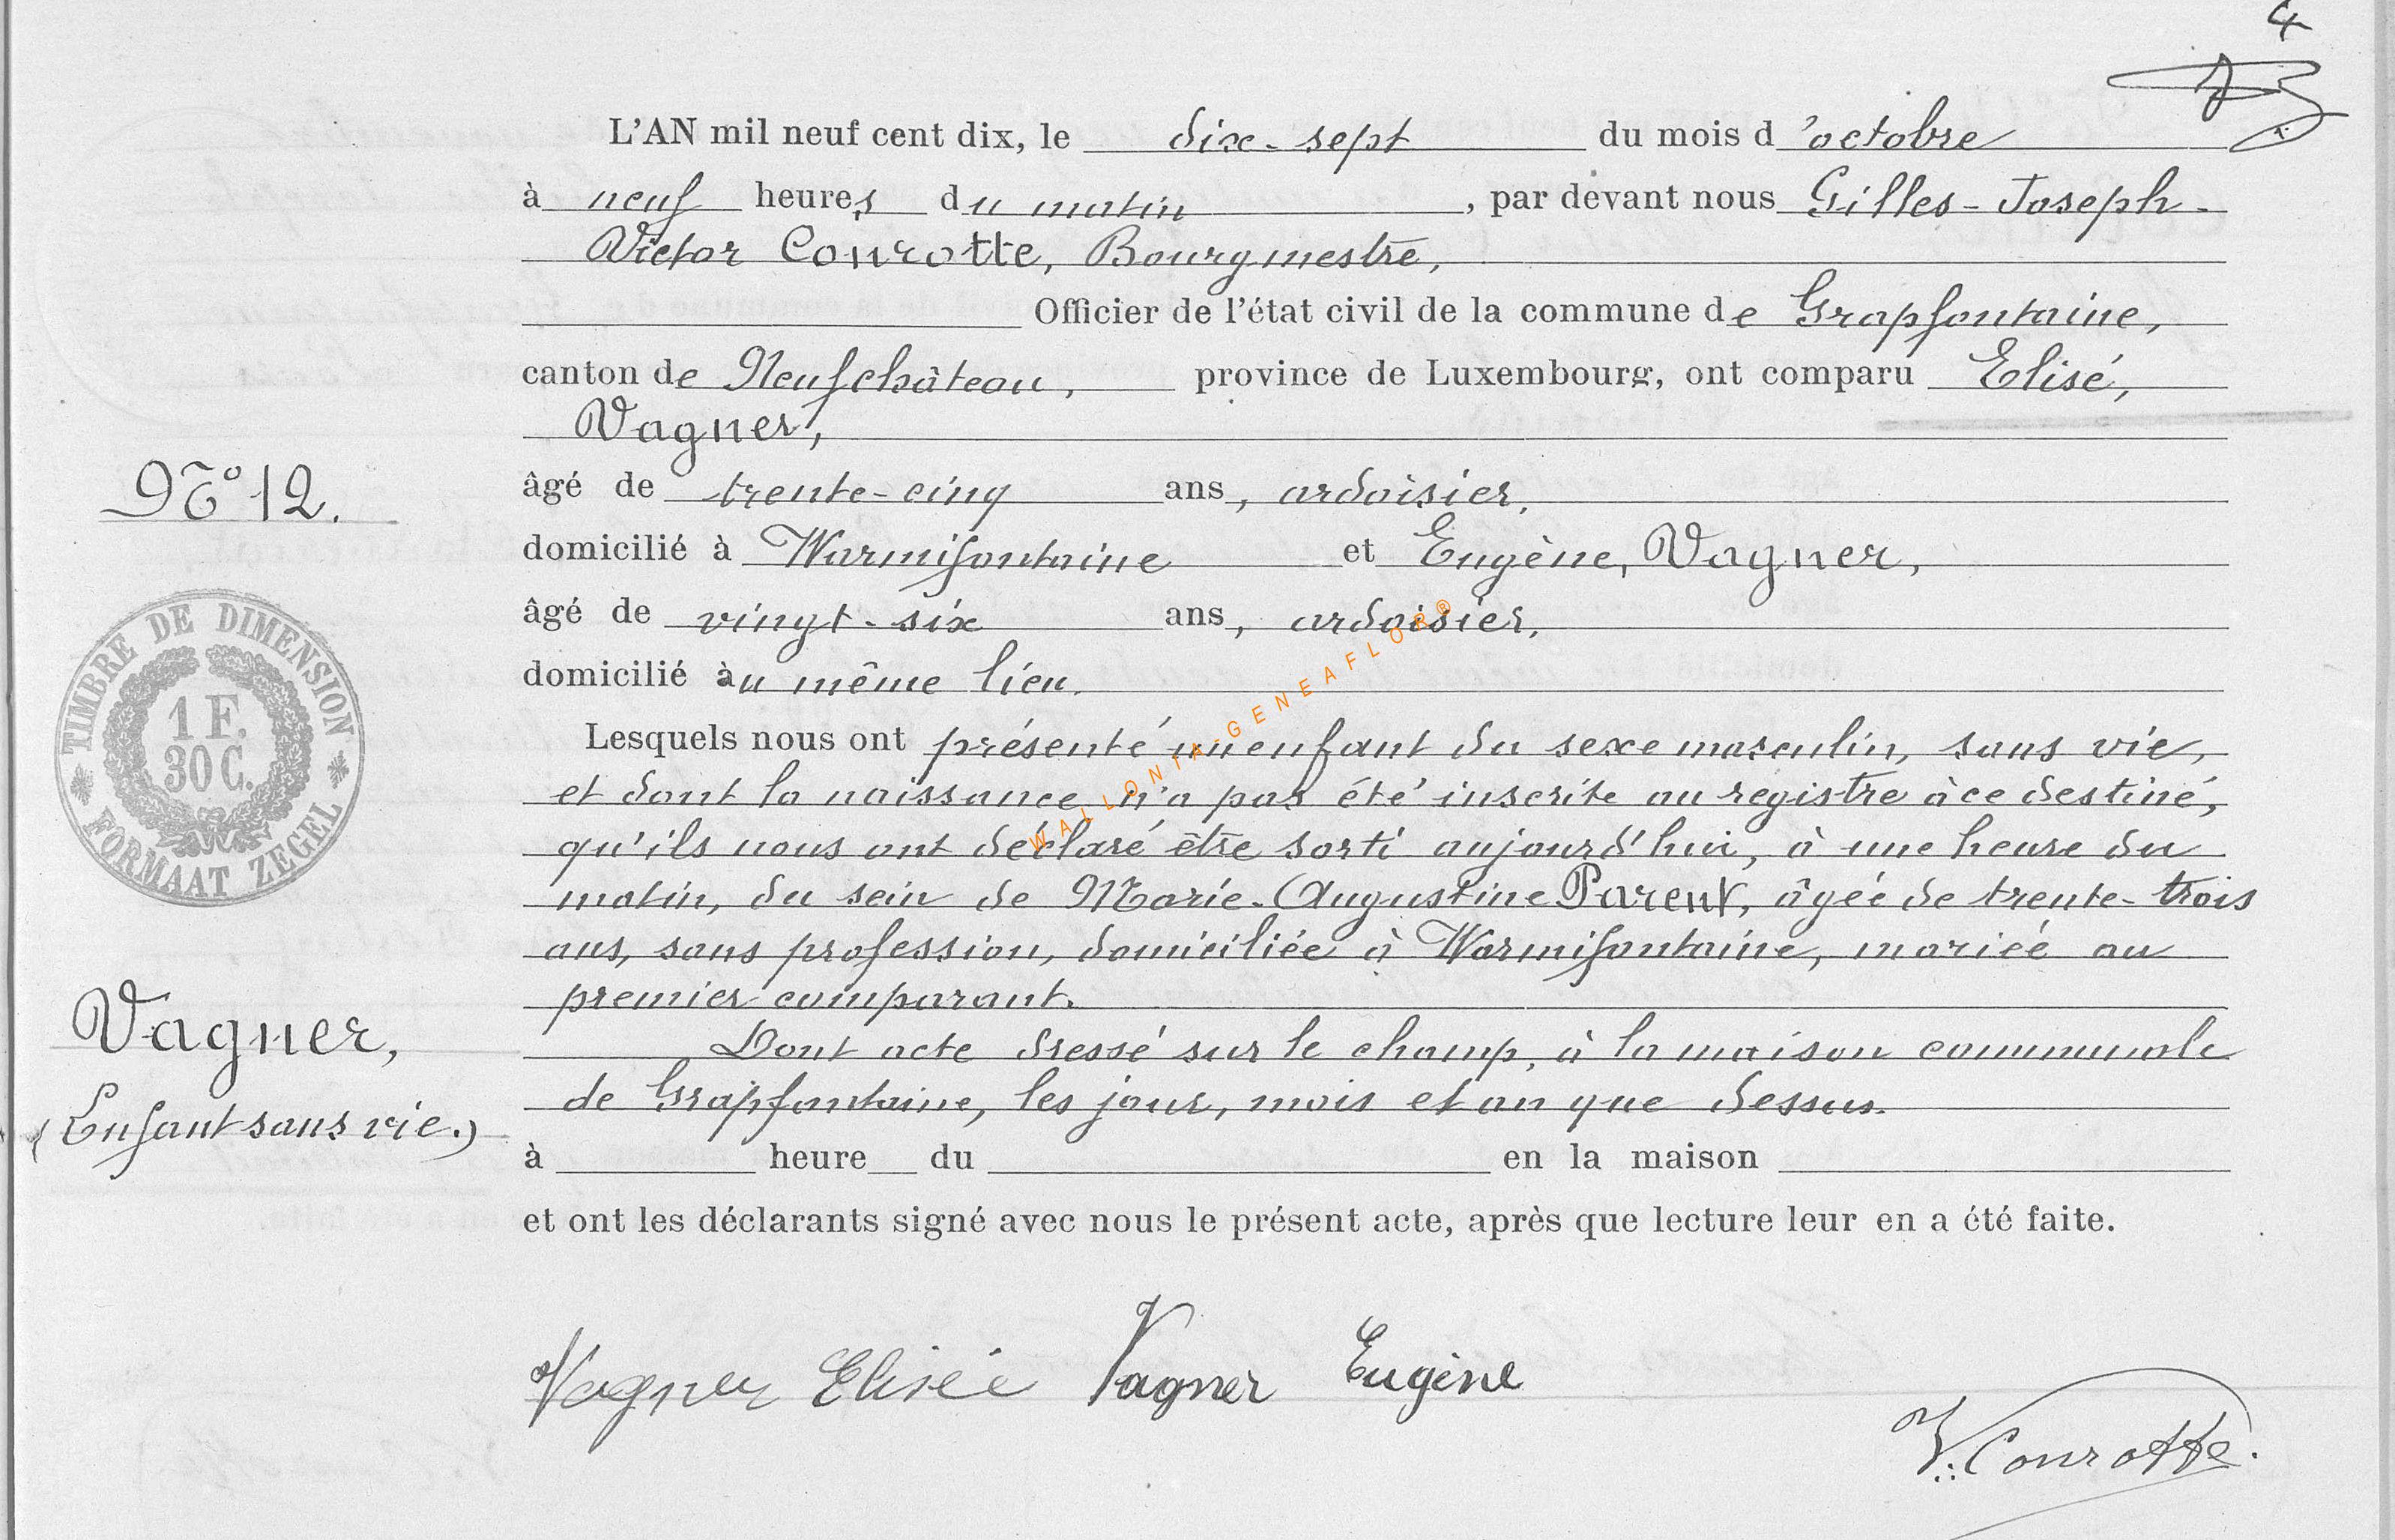 4
L'AN mil neuf cent dix, le dix-sept du mois d'octobre
à neuf heures du matin, par devant nous Gilles-Joseph-
Victor Conrotte, Bourgmestre,
Officier de l'état civil de la commune de Grapfontaine,
canton de Neufchâteau, province de Luxembourg, ont comparu Elisé,
Vagner,
N° 12.
âgé de trente-cinq ans, ardoisier,
domicilié à Warmifontaine et Eugène, Vagner,
âgé de vingt-six ans, ardoisier,
domicilié au même lieu.
TIMBRE DE DIMENSION
1 F.
30 C.
FORMAAT ZEGEL
WALLONIA-GENEAFLOR®
Lesquels nous ont présenté un enfant du sexe masculin, sans vie,
et dont la naissance n'a pas été inscrite au registre à ce destiné,
qu'ils nous ont déclaré être sorti aujourd'hui, à une heure du
matin, du sein de Marie-Augustine Parent, âgée de trente-trois
ans, sans profession, domiciliée à Warmifontaine, mariée au
premier comparant.
Vagner,
(Enfant sans vie.)
Dont acte dressé sur le champ, à la maison communale
de Grapfontaine, les jour, mois et an que dessus.
à heure du en la maison
et ont les déclarants signé avec nous le présent acte, après que lecture leur en a été faite.
Vagner Elisée Vagner Eugène
V. Conrotte.